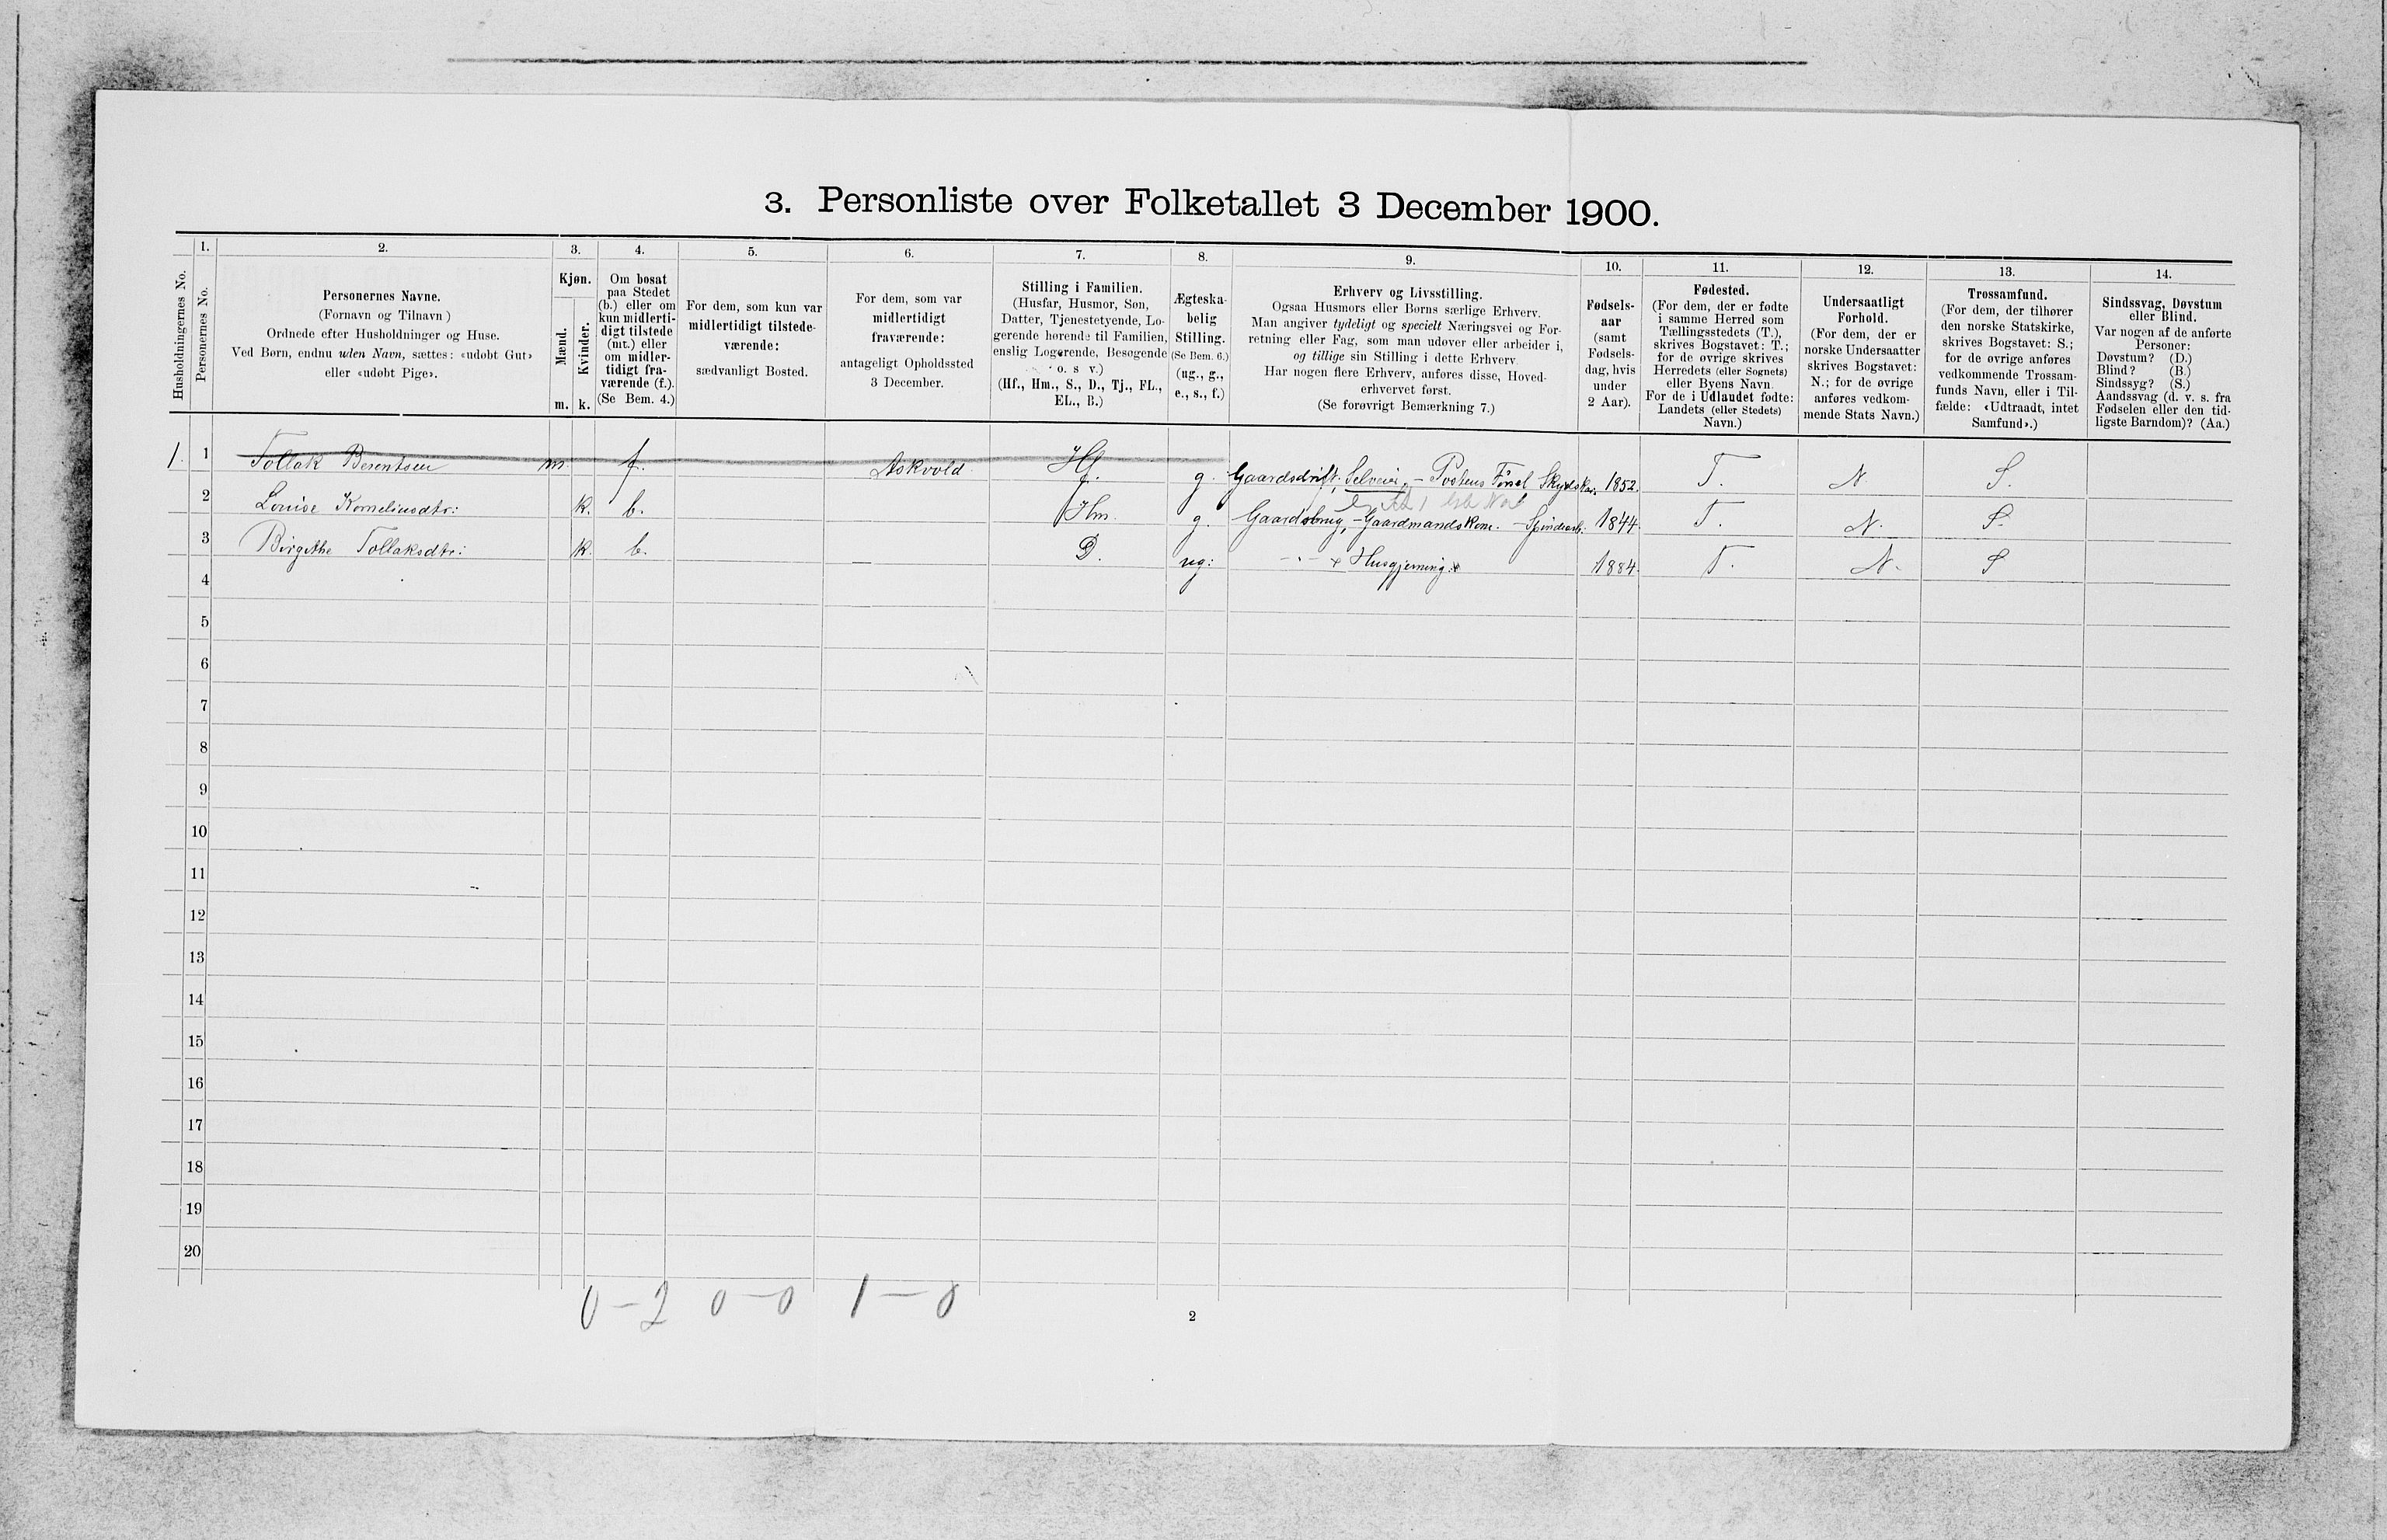 3. Personliste over Folketallet 3 December 1900.
1. 2. 3. 4. 5. 6. 7. 8. 9. 10. 11. 12. 13. 14.
Husholdningernes No.
Personernes No.
Personernes Navne.
(Fornavn og Tilnavn)
Ordnede efter Husholdninger og Huse.
Ved Børn, endnu uden Navn, sættes: «udøbt Gut»
eller «udøbt Pige».
Kjøn.
Mænd.
Kvinder.
m. k.
Om bosat
paa Stedet
(b.) eller om
kun midlerti-
digt tilstede
(mt.) eller
om midler-
tidigt fra-
værende (f.).
(Se Bem. 4.)
For dem, som kun var
midlertidigt tilstede-
værende:
sædvanligt Bosted.
For dem, som var
midlertidigt
fraværende:
antageligt Opholdssted
3 December.
Stilling i Familien.
(Husfar, Husmor, Søn,
Datter, Tjenestetyende, Lo-
gerende hørende til Familien,
enslig Logerende, Besøgende
o. s v.)
(Hf., Hm., S., D., Tj., FL.,
EL., B.)
Ægteska-
belig
Stilling.
(Se Bem. 6.)
(ug., g.,
e., s., f.)
Erhverv og Livsstilling.
Ogsaa Husmors eller Børns særlige Erhverv.
Man angiver tydeligt og specielt Næringsvei og For-
retning eller Fag, som man udøver eller arbeider i,
og tillige sin Stilling i dette Erhverv.
Har nogen flere Erhverv, anføres disse, Hoved-
erhvervet først.
(Se forøvrigt Bemærkning 7.)
Fødsels-
aar
(samt
Fødsels-
dag, hvis
under
2 Aar).
Fødested.
(For dem, der er fødte
i samme Herred som
Tællingsstedets (T.),
skrives Bogstavet: T.;
for de øvrige skrives
Herredets (eller Sognets)
eller Byens Navn.
For de i Udlandet fødte:
Landets (eller Stedets)
Navn.)
Undersaatligt
Forhold.
(For dem, der er
norske Undersaatter
skrives Bogstavet:
N.; for de øvrige
anføres vedkom-
mende Stats Navn.)
Trossamfund.
(For dem, der tilhører
den norske Statskirke,
skrives Bogstavet: S.;
for de øvrige anføres
vedkommende Trossam-
funds Navn, eller i Til-
fælde: «Udtraadt, intet
Samfund».)
Sindssvag, Døvstum
eller Blind.
Var nogen af de anførte
Personer:
Døvstum? (D.)
Blind? (B.)
Sindssyg? (S.)
Aandssvag (d. v. s. fra
Fødselen eller den tid-
ligste Barndom)? (Aa.)
1. 1 Tollak Berentsen m. f. Askvold Hf. g. Gaardsdrift, Selveier, - Postens Førsel 1852. T. N S.
2 Louise Korneliusdtr: k. b. Hm. g. Gaardsbrug, - Gaardmandskone. - 1844. T. N. S.
3 Birgithe Tollaksdtr: k. b. D. ug: Husgjerning 1884. T. N. S
4
5
6
7
8
9
10
11
12
13
14
15
16
17
18
19
20
0 - 2 0 - 0 1 - 0
2